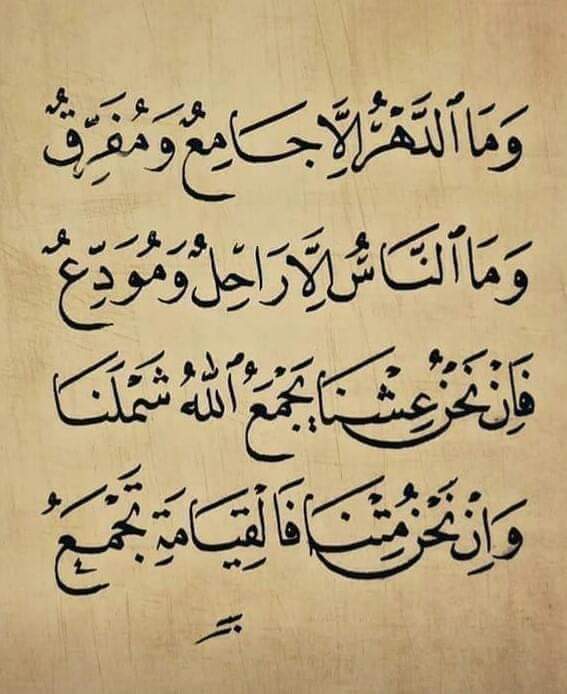 وَمَا ٱلدَّهْرُ إِلَّا جَامِعٌ وَمُفَرِّقٌ
وَمَا ٱلنَّاسُ إِلَّا رَاحِلٌ وَمُوَدِّعٌ
فَإِنْ نَحْنُ عِشْنَا يَجْمَعُ ٱللَّهُ شَمْلَنَا
وَإِنْ نَحْنُ مِتْنَا فَالْقِيَامَةِ تَجْمَعُ